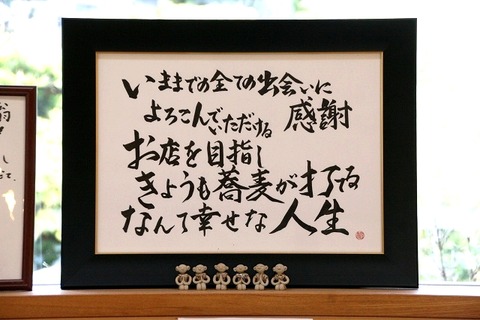 いままでの全ての出会いに
感謝
よろこんでいただける
お店を目指し
きょうも蕎麦が打てる
なんて幸せな人生